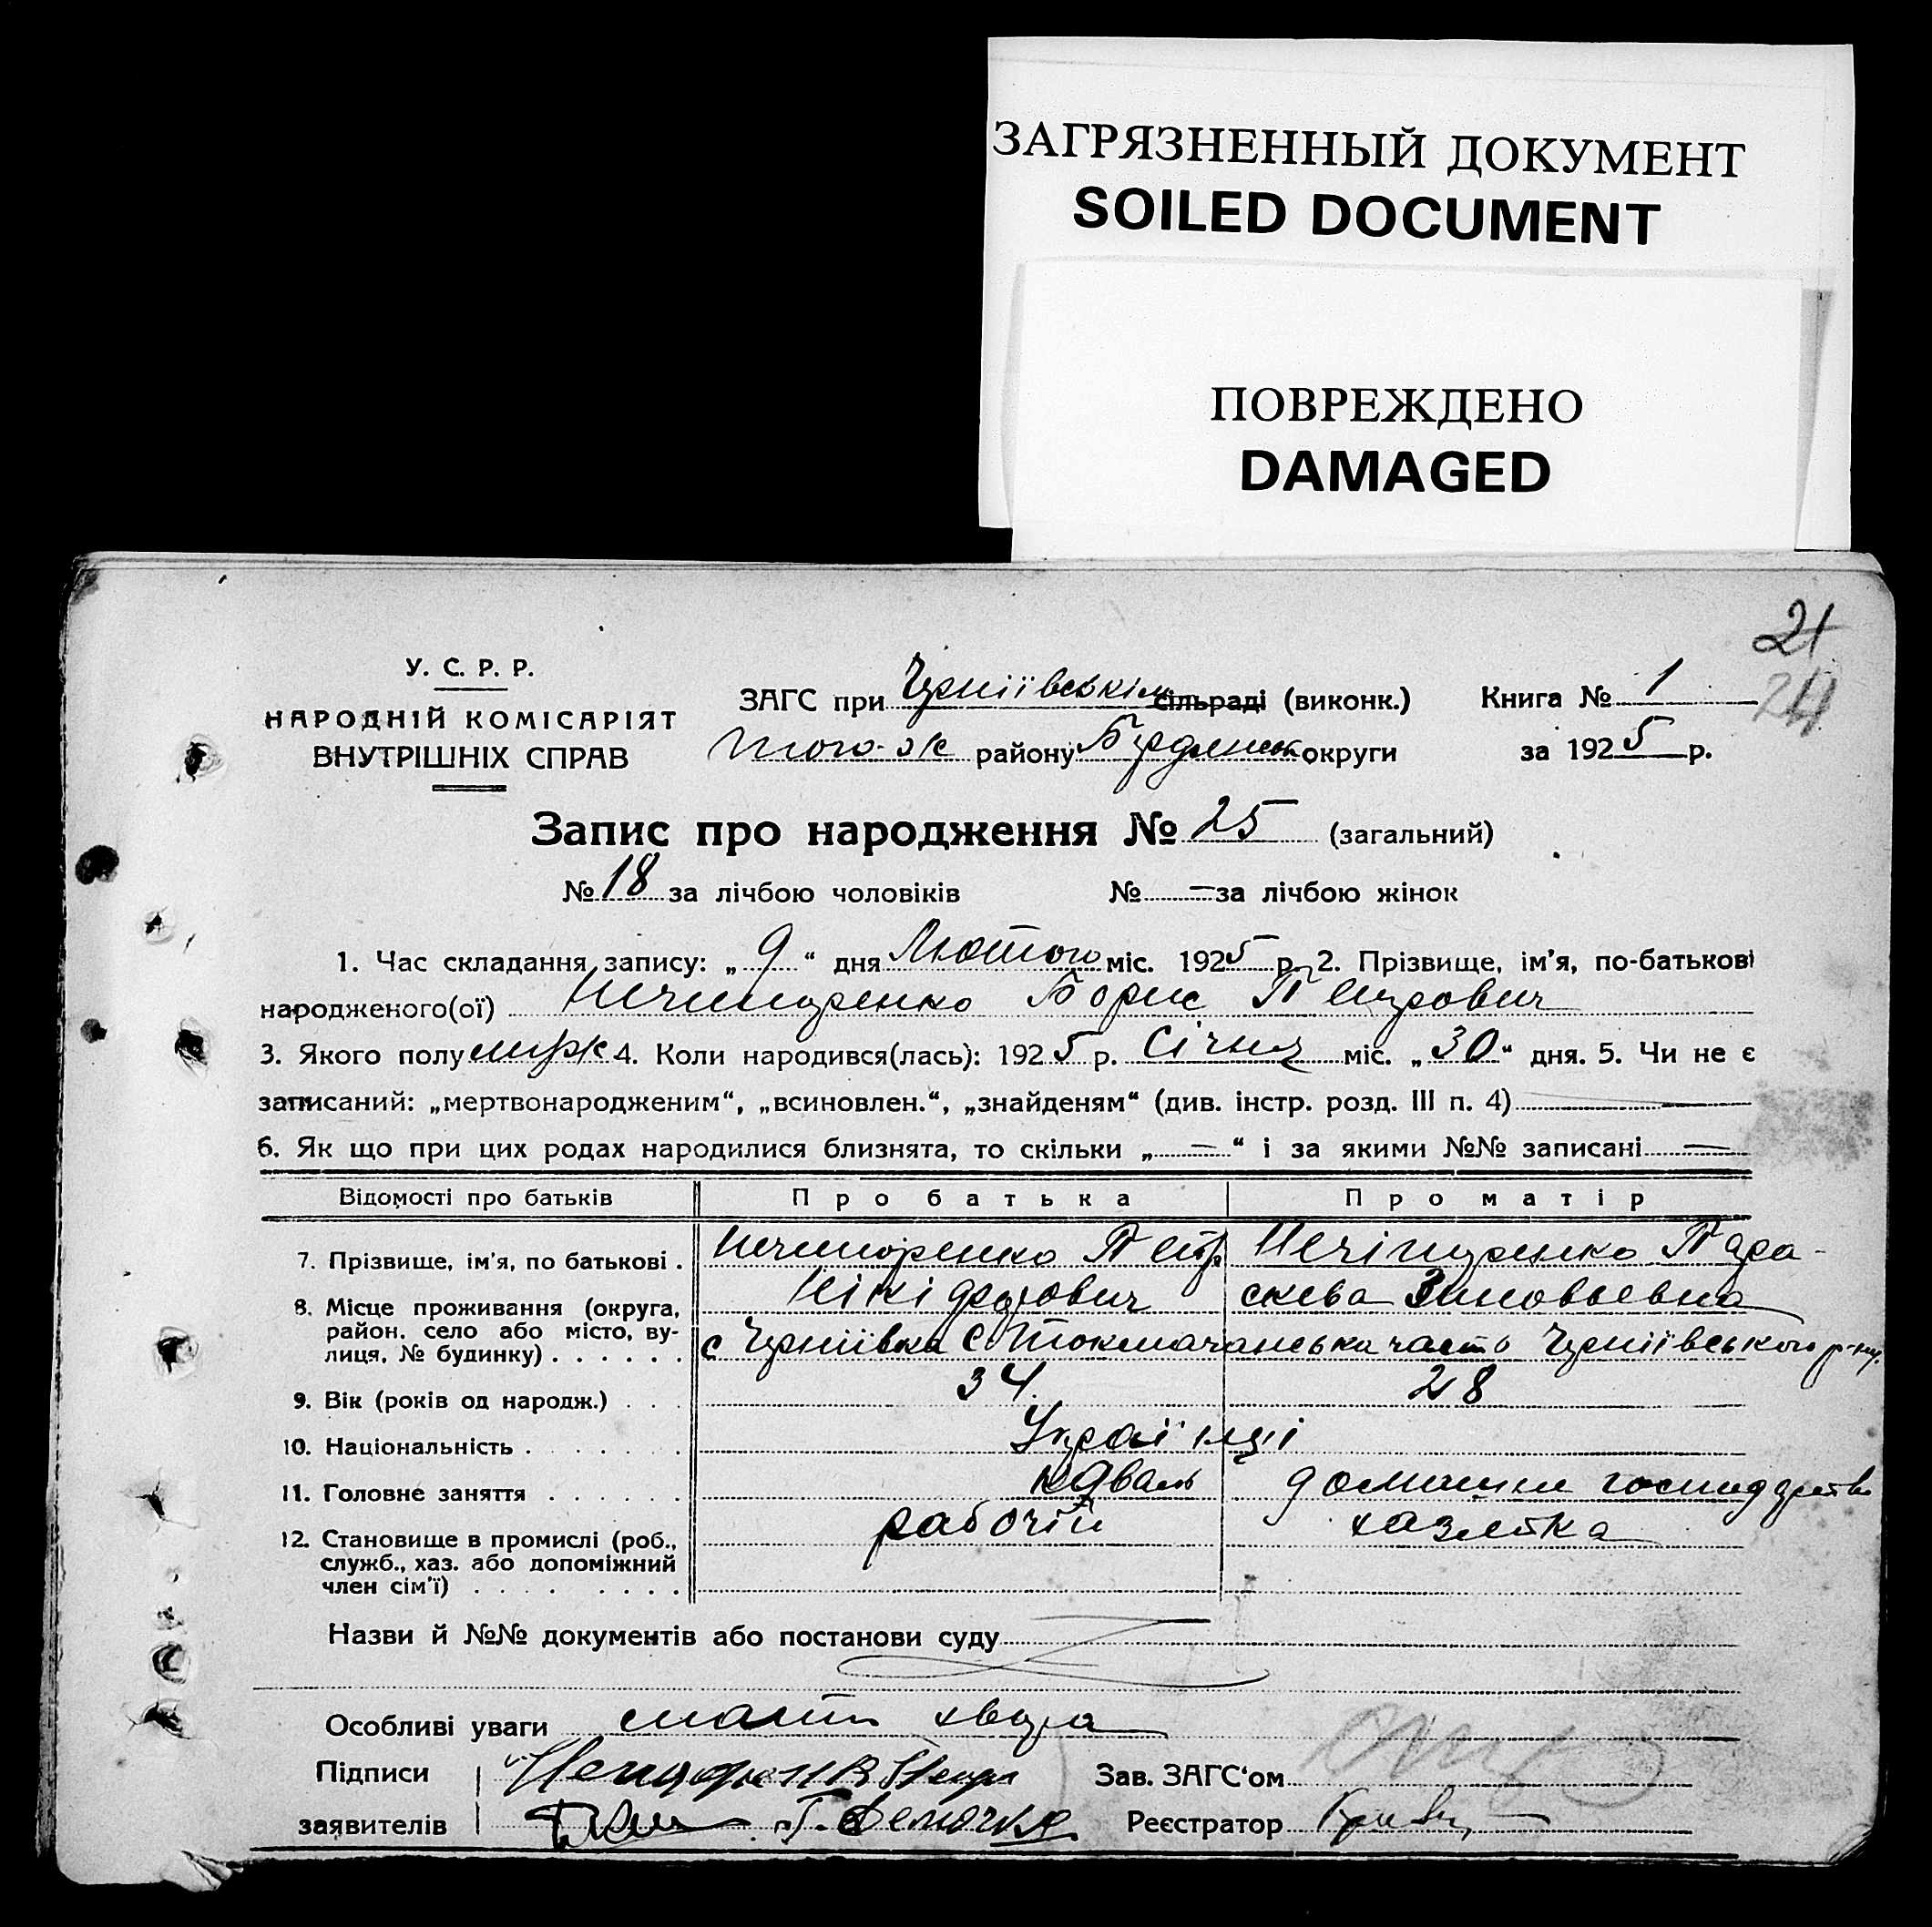 ЗАГРЯЗНЕННЫЙ ДОКУМЕНТ
SOILED DOCUMENT
ПОВРЕЖДЕНО
DAMAGED
21
24
У. С. Р. Р.
НАРОДНІЙ КОМІСАРІЯТ
ВНУТРІШНІХ СПРАВ
ЗАГС при Черніївськім сільраді (виконк.) Книга № 1
того-ж району округи за 1925 р.
Запис про народження № 25 (загальний)
№ 18 за лічбою чоловіків № — за лічбою жінок
1. Час складання запису: „ 9 “ дня Лютого міс. 1925 р. 2. Прізвище, ім'я, по-батькові
народженого(ої) Нечипоренко Борис Петрович
3. Якого полу 4. Коли народився(лась): 1925 р. Січня міс. „ 30 “ дня. 5. Чи не є
записаний: „мертвонародженим“, „всиновлен.“, „знайденям“ (див. інстр. розд. III п. 4) —
6. Як що при цих родах народилися близнята, то скільки „ — “ і за якими №№ записані —
Відомості про батьків Про батька Про матір
7. Прізвище, ім'я, по батькові . Нечипоренко Петр Нечіпуренко Пара-
Нікіфорович скева Зиновьевна
8. Місце проживання (округа,
район, село або місто, ву-
лиця, № будинку) . . . . . . с Черніївка С Токмачанська часть Черніївського р-ну.
9. Вік (років од народж.) . . . 34 28
10. Національність . . . . . . . Українці
11. Головне заняття . . . . . . коваль домашне господарство
12. Становище в промислі (роб.,
служб., хаз. або допоміжний
член сім'ї) . . . . . . . . . рабочій хазяйка
Назви й №№ документів або постанови суду
Особливі уваги мати хвора
Підписи Зав. ЗАГС‘ом
заявителів Реєстратор